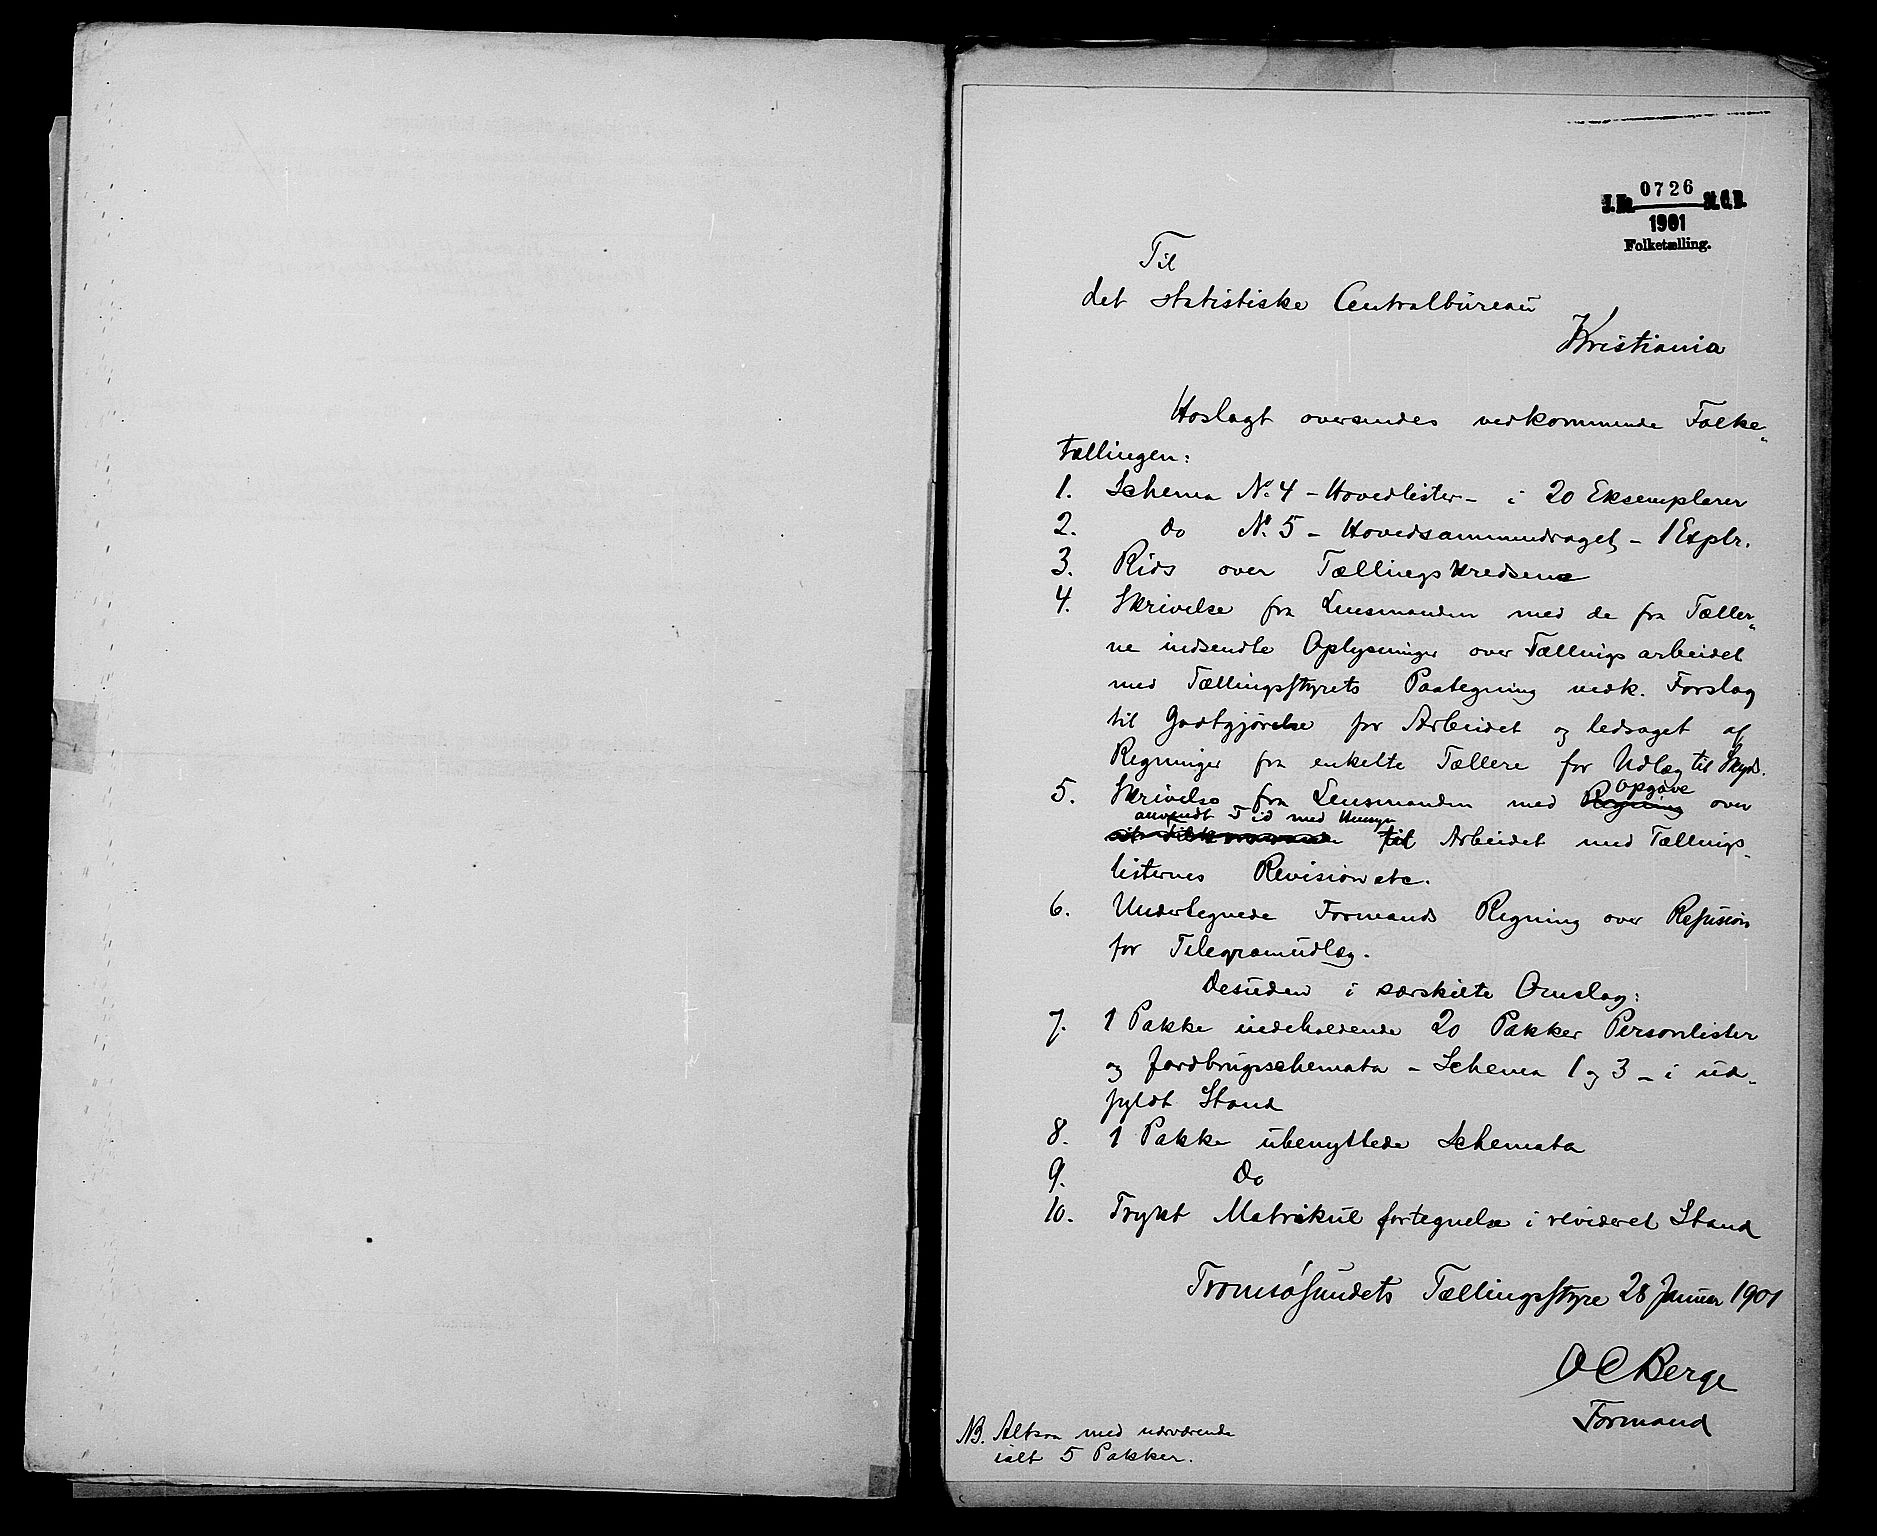 J.No. 0726 St.C.B.
1901
Folketælling.
Til
det statistiske Centralbureau
Kristiania
Hoslagt oversendes vedkommende Folke-
tællingen:
1. Schema No. 4 - Hovedlister - i 20 Eksemplarer
2. do No. 5 - Hovedsammendraget - 1 Explr.
3. Rids over Tællingskredsene
4. Skrivelse fra Lensmanden med de fra Tæller-
ne indsendte Oplysninger over Tællingsarbeidet
med Tællingsstyrets Paategning vedk. Forslag
til Godtgjørelse for Arbeidet og ledsaget af
Regninger fra enkelte Tællere for Udlæg til Skyds.
5. Skrivelse fra Lensmanden med Regning Opgave over
anvendt Tid med Hensyn
til Arbeidet med Tællings-
listernes Revision etc.
6. Undertegnede Formands Regning over Refusion
for Telegramudlæg.
Desuden i særskilte Omslag:
7. 1 Pakke indeholdende 20 Pakker Personlister
og Jordbrugsschemata - Schema 1 og 3 - i ud-
fyldt Stand
8. 1 Pakke ubenyttede Schemata
9. Do
10. Trykt Matrikulfortegnelse i revideret Stand
Tromsøsundets Tællingsstyre 28 Januar 1901
O C Berge
Formand
NB. Altsaa med nærværende
ialt 5 Pakker.